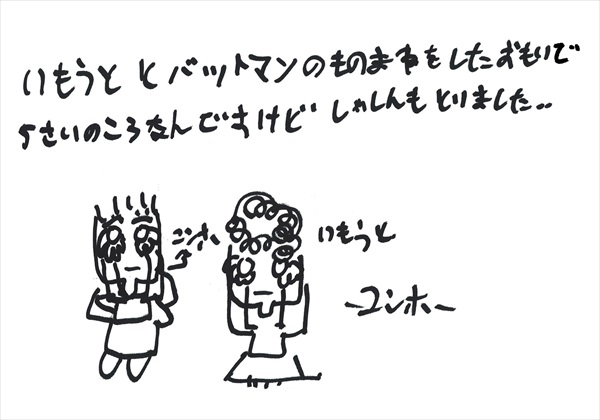 いもうと と バットマンのものまねをしたおもいで
5さいのころなんですけど しゃしんも とりました..
ユンホ
いもうと
ーユンホー